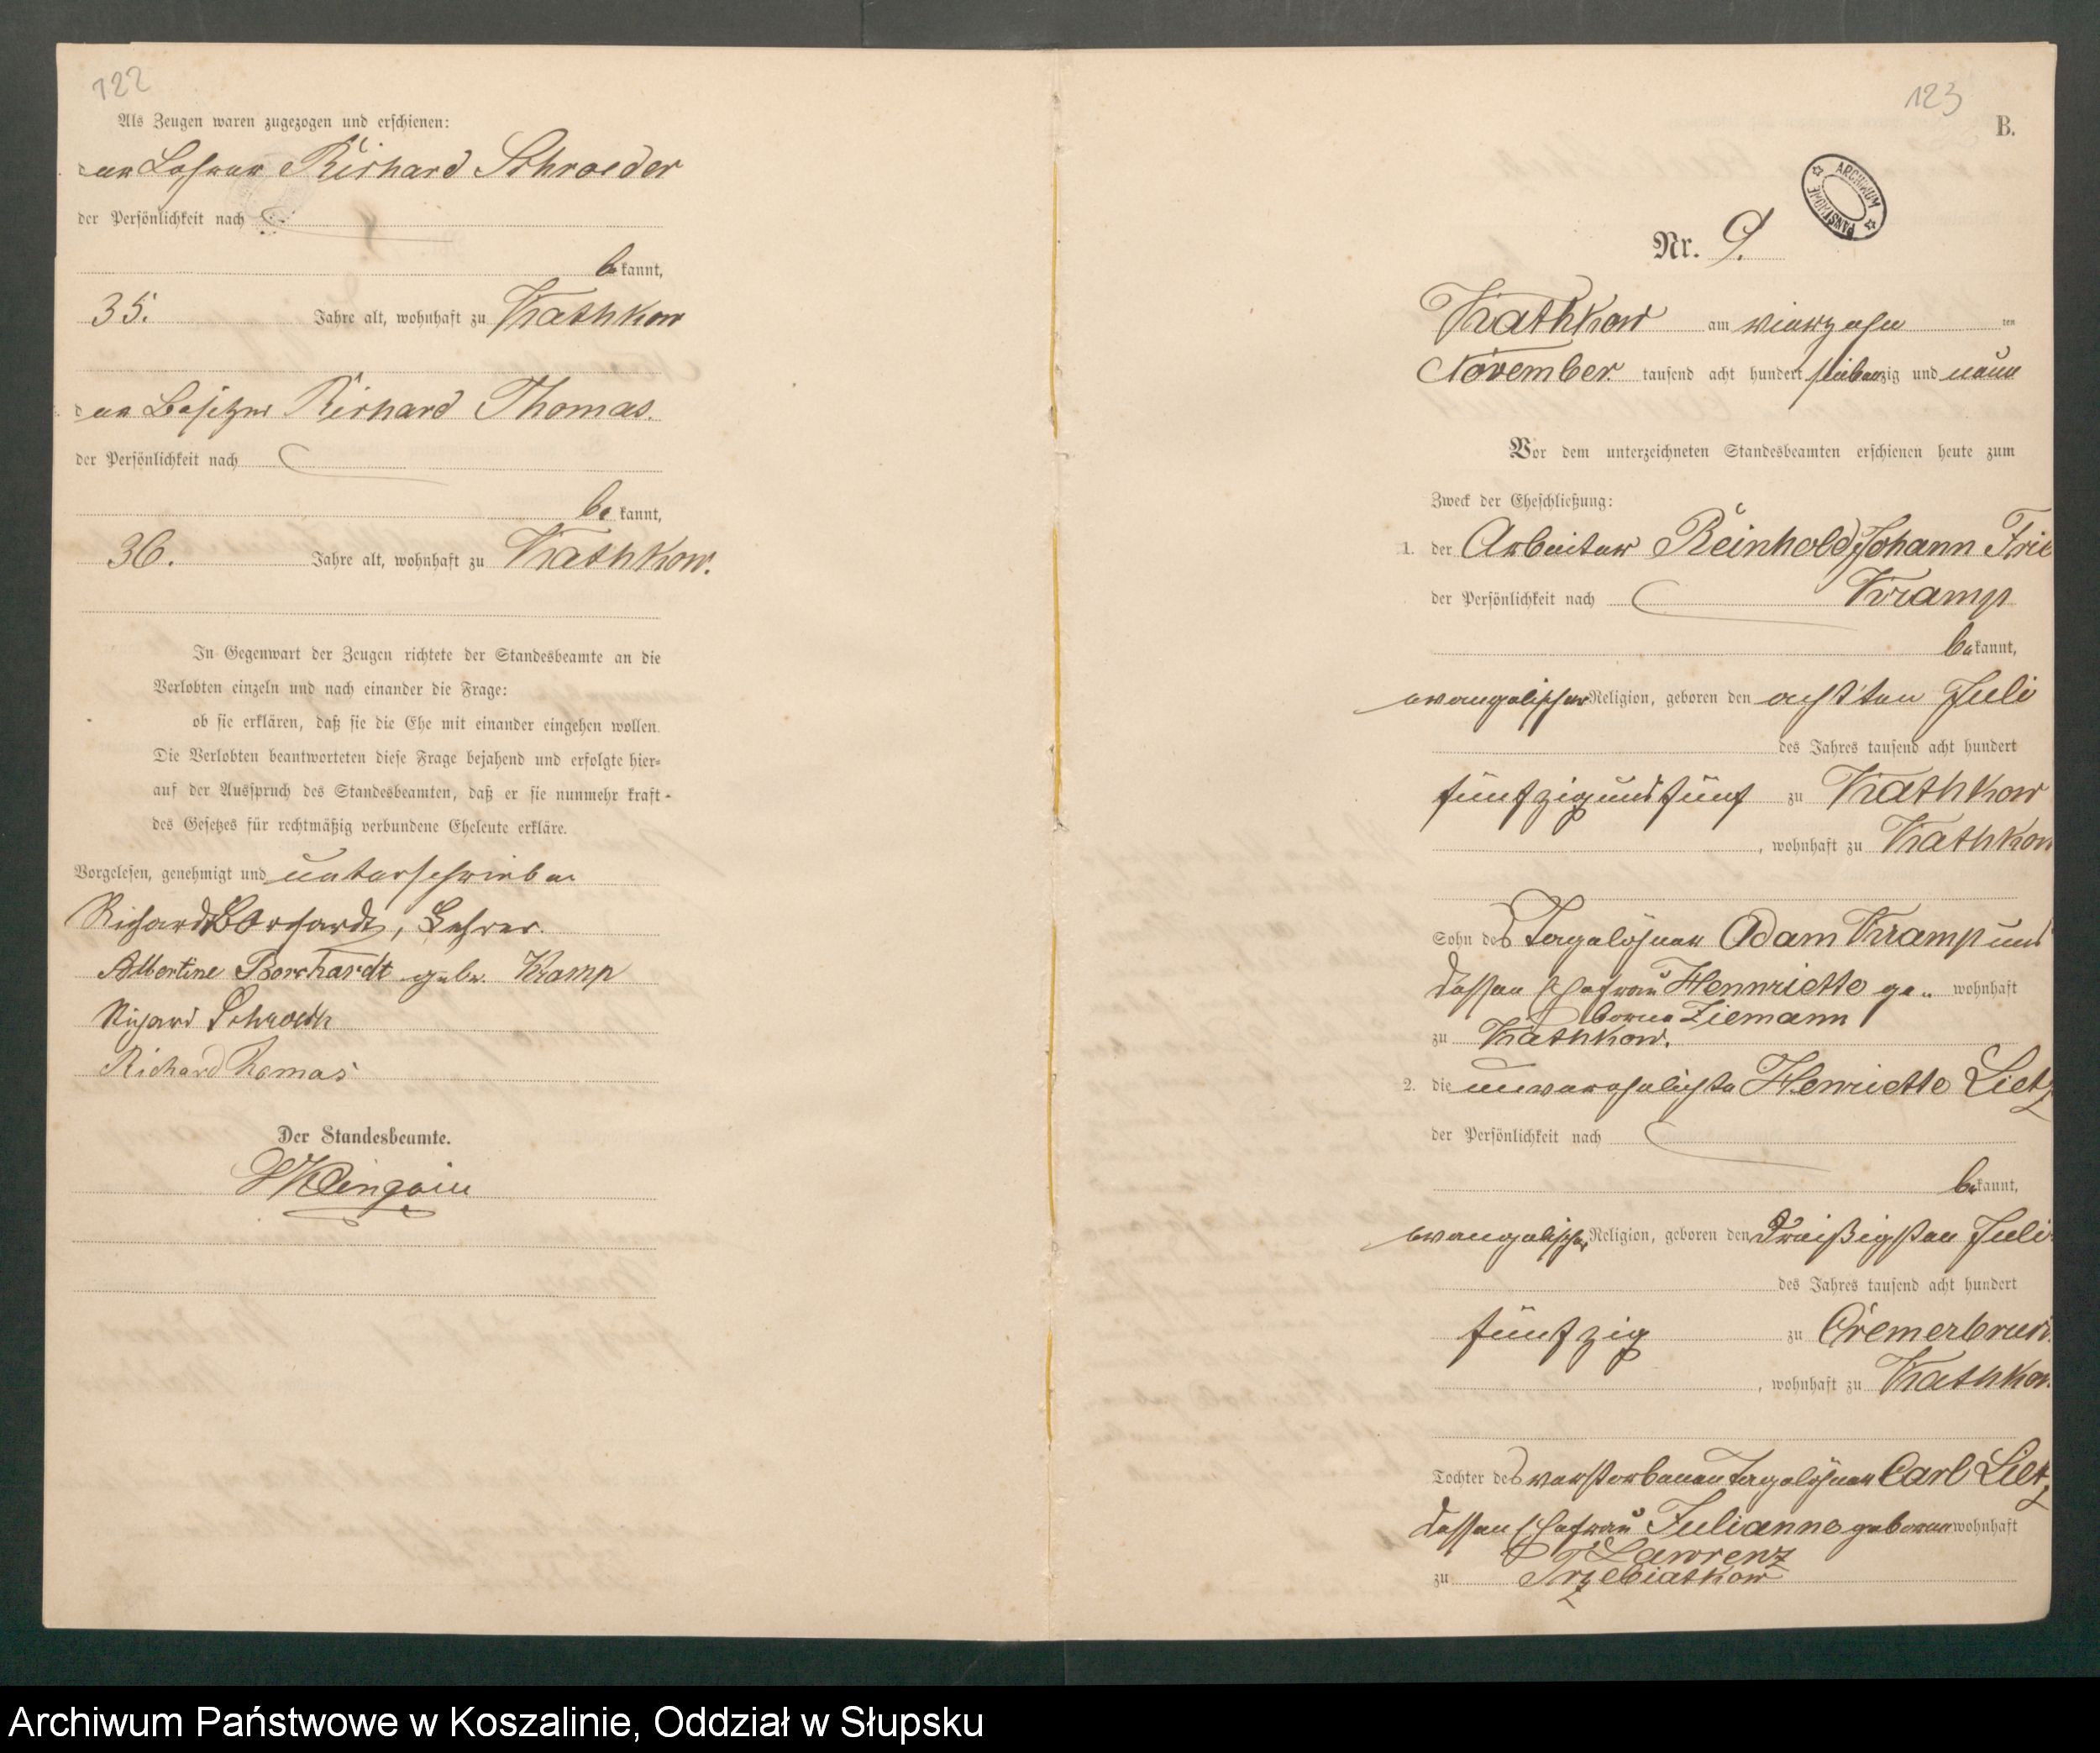 122
Als Zeugen waren zugezogen und erschienen:
der Lehrer Richard Schroeder
der Persönlichkeit nach
be kannt,
35. Jahre alt, wohnhaft zu Kathkow
der Besitzer Richard Thomas.
der Persönlichkeit nach
be kannt,
36. Jahre alt, wohnhaft zu Kathkow.
In Gegenwart der Zeugen richtete der Standesbeamte an die
Verlobten einzeln und nach einander die Frage:
ob sie erklären, daß sie die Ehe mit einander eingehen wollen.
Die Verlobten beantworteten diese Frage bejahend und erfolgte hier-
auf der Ausspruch des Standesbeamten, daß er sie nunmehr kraft
des Gesetzes für rechtmäßig verbundene Eheleute erkläre.
Vorgelesen, genehmigt und unterschrieben
Richard Borchardt, Lehrer.
Albertine Borchardt gebr. Kramp
Richard Schroeder
Richard Thomas
Der Standesbeamte.
123
B.
ARCHIWUM PAŃSTWOWE
Nr. 9.
Kathkow am vierzehn ten
November tausend acht hundert siebenzig und neun
Vor dem unterzeichneten Standesbeamten erschienen heute zum
Zweck der Eheschließung:
1. der Arbeiter Reinhold Johann Frie
der Persönlichkeit nach Kramp
be kannt,
evangelischer Religion, geboren den achtten Juli
des Jahres tausend acht hundert
fünfzig und fünf zu Kathkow
, wohnhaft zu Kathkow
Sohn des Tagelöhner Adam Kramp und
dessen Ehefrau Hennriette ge- wohnhaft
borene Ziemann
zu Kathkow.
2. die unverehelichte Henriette Lietz
der Persönlichkeit nach
be kannt,
evangelischer Religion, geboren den dreißigsten Juli
des Jahres tausend acht hundert
fünfzig zu Cremerbruch
, wohnhaft zu Kathkow
Tochter des verstorbenen Tagelöhner Carl Lietz
dessen Ehefrau Julianne geborene wohnhaft
Lawrenz
zu Trzebiatkow
Archiwum Państwowe w Koszalinie, Oddział w Słupsku